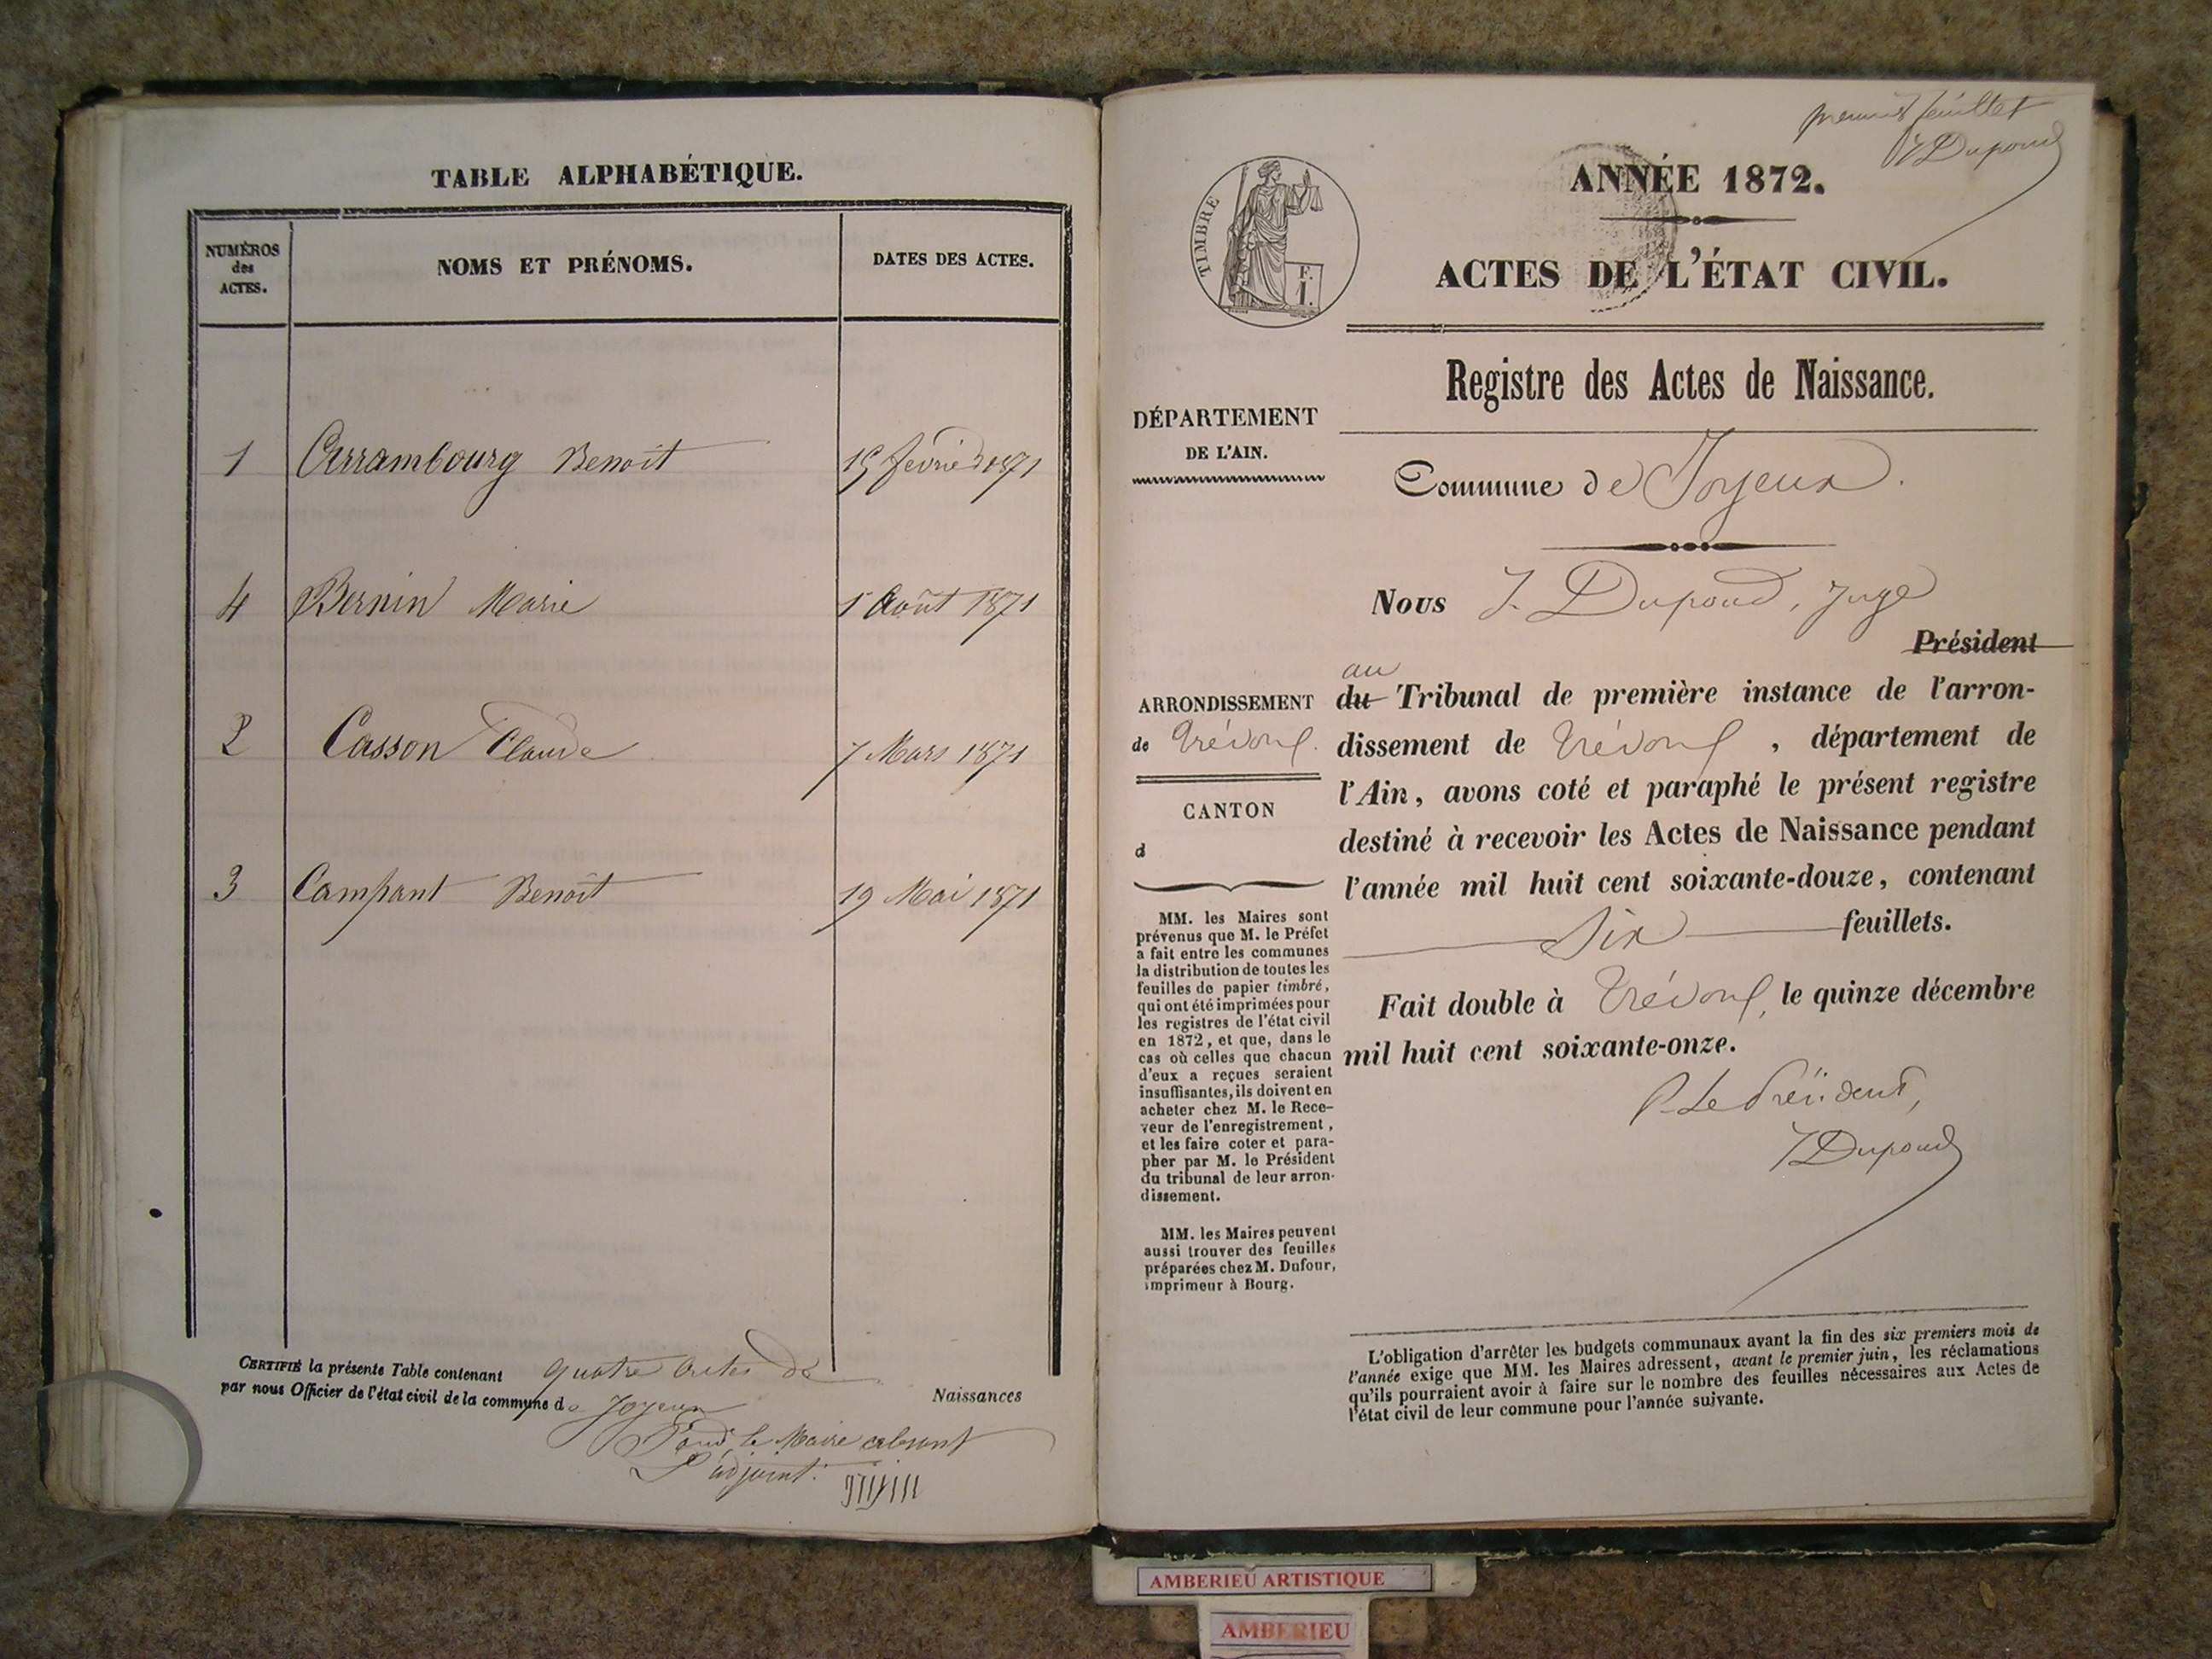 TABLE ALPHABÉTIQUE.
NUMÉROS
des
ACTES.
NOMS ET PRÉNOMS.
DATES DES ACTES.
1 Benoit 15 février 1871
4 Bernin Marie 1 Août 1871
2 Casson Claude 7 Mars 1871
3 Campant Benoît 19 Mai 1871
CERTIFIÉ la présente Table contenant quatre actes de
Naissances
par nous Officier de l'état civil de la commune de Joyeux
Pour le Maire absent
L'adjoint
premier feuillet
J Dupond
TIMBRE
F.
1.
ANNÉE 1872.
ACTES DE L'ÉTAT CIVIL.
Registre des Actes de Naissance.
DÉPARTEMENT
DE L'AIN.
Commune de Joyeux.
Nous J. Dupond, Juge
Président
au
du Tribunal de première instance de l'arron-
dissement de Trévoux, département de
l'Ain, avons coté et paraphé le présent registre
destiné à recevoir les Actes de Naissance pendant
l'année mil huit cent soixante-douze, contenant
Six feuillets.
Fait double à Trévoux, le quinze décembre
mil huit cent soixante-onze.
P. Le Président,
J Dupond
ARRONDISSEMENT
de Trévoux.
CANTON
d
MM. les Maires sont
prévenus que M. le Préfet
a fait entre les communes
la distribution de toutes les
feuilles de papier timbré,
qui ont été imprimées pour
les registres de l'état civil
en 1872, et que, dans le
cas où celles que chacun
d'eux a reçues seraient
insuffisantes, ils doivent en
acheter chez M. le Rece-
veur de l'enregistrement,
et les faire coter et para-
pher par M. le Président
du tribunal de leur arron-
dissement.
MM. les Maires peuvent
aussi trouver des feuilles
préparées chez M. Dufour,
imprimeur à Bourg.
L'obligation d'arrêter les budgets communaux avant la fin des six premiers mois de
l'année exige que MM. les Maires adressent, avant le premier juin, les réclamations
qu'ils pourraient avoir à faire sur le nombre des feuilles nécessaires aux Actes de
l'état civil de leur commune pour l'année suivante.
AMBERIEU ARTISTIQUE
AMBERIEU